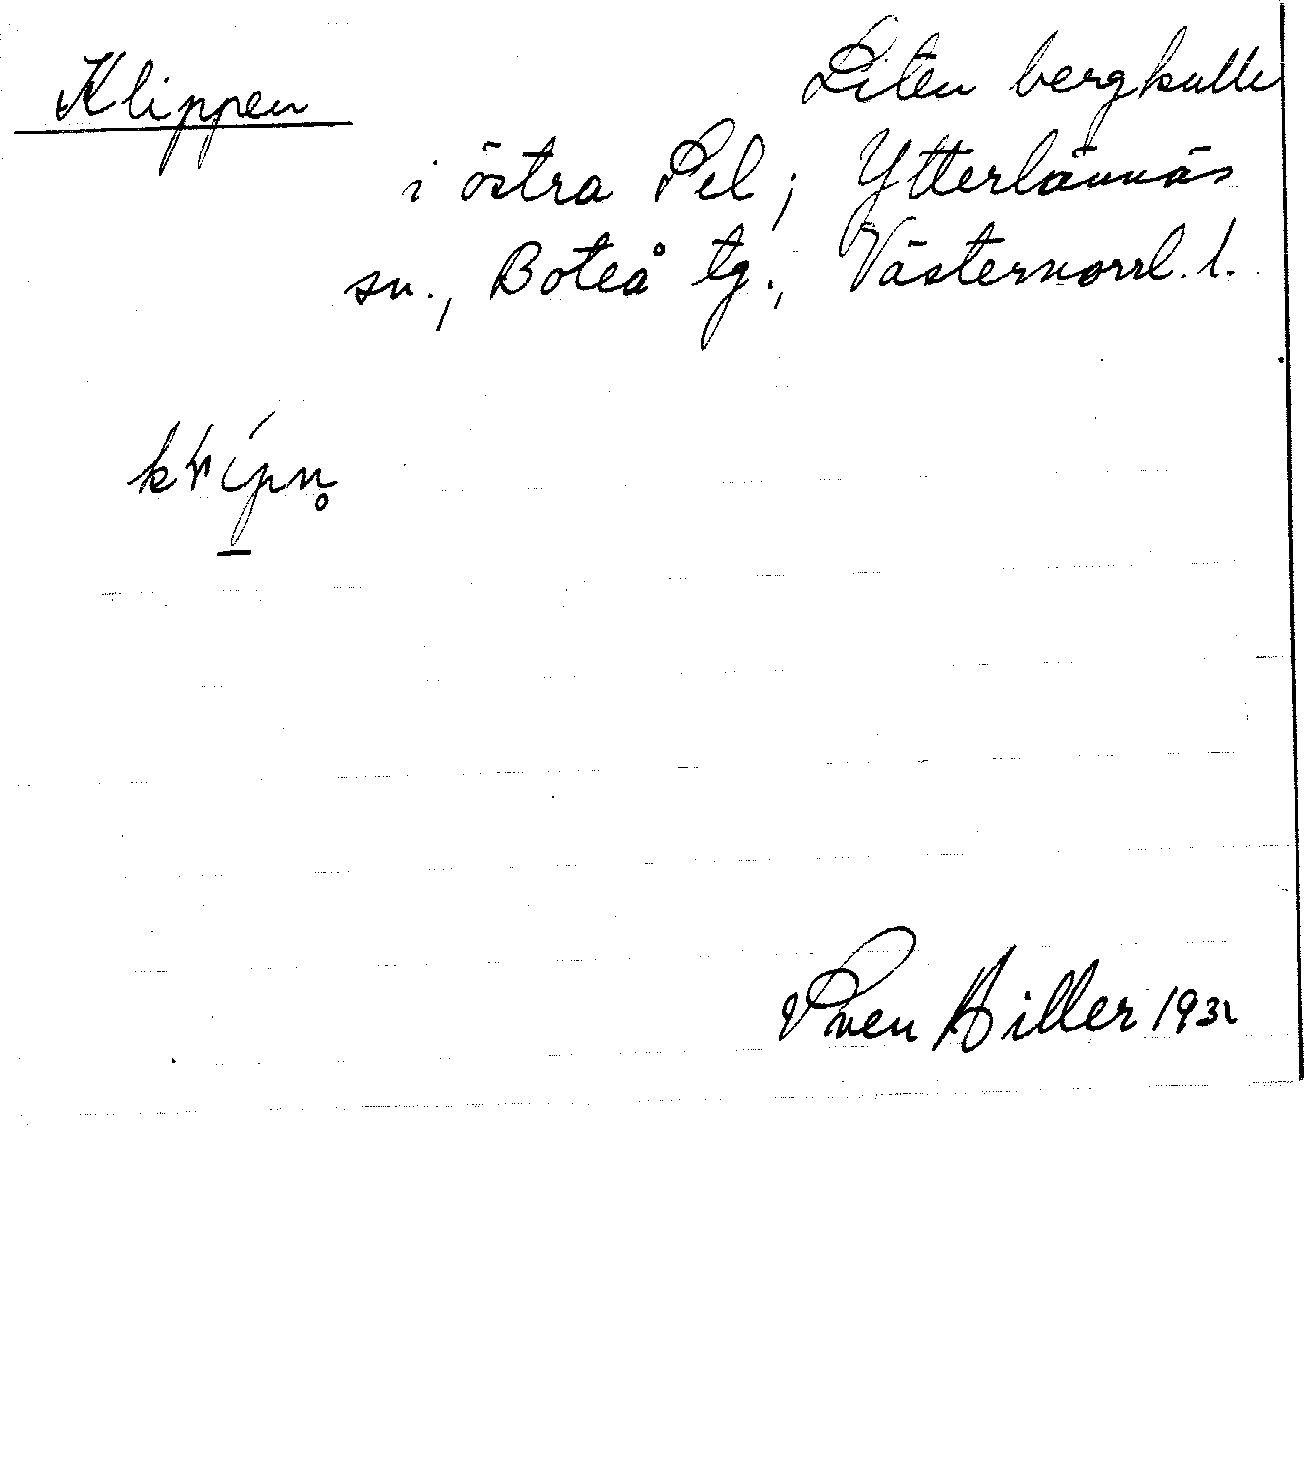 Klippen
Liten bergkulle
i östra Pel; Ytterlännäs
sn., Boteå tg., Västernorrl. l.
Sven Hiller 1932